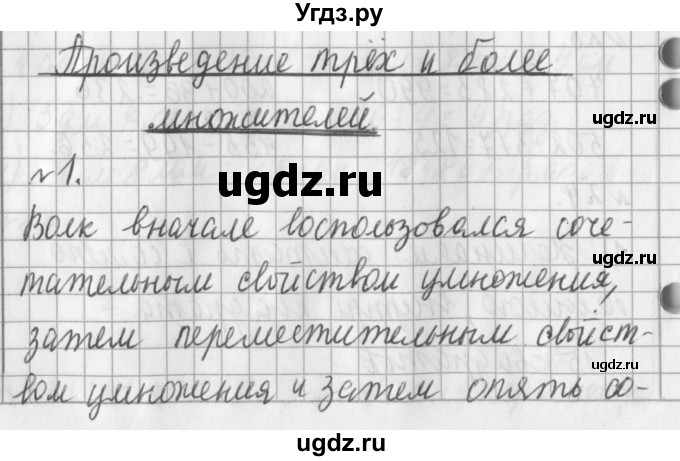 Угдз.ру
Произведение трёх и более
ugdz.ru
множителей
№1.
ugdz.ru
ugdz.ru
Волк вначале воспользовался соче-
ugdz.ru
тательным свойством умножения,
затем переместительным свойст-
ugdz.ru
вом умножения и затем опять со-
ugdz.ru